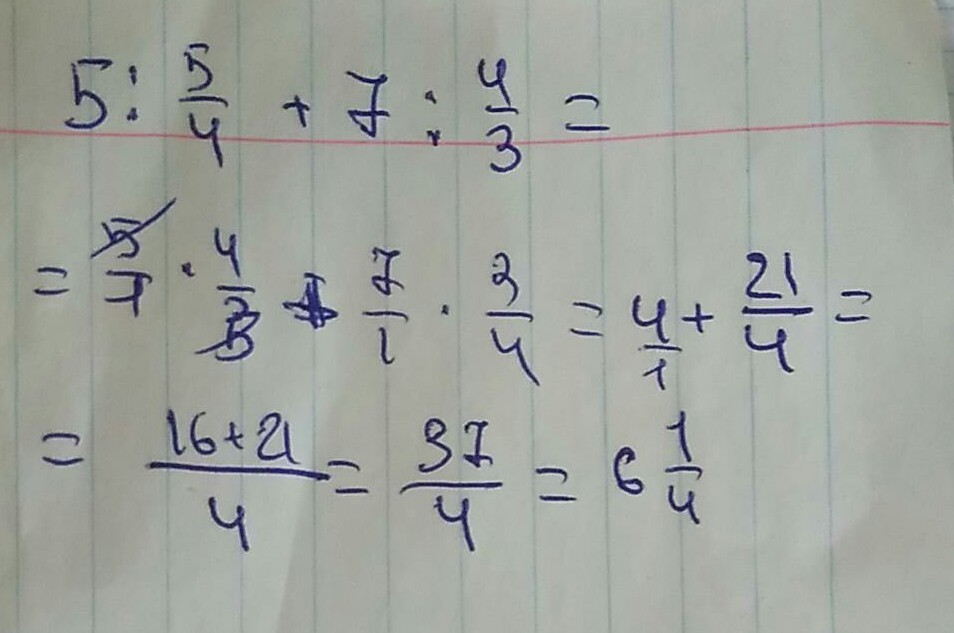 5 : 5/4 + 7 : 4/3 =
= 5/1 · 4/5 + 7/1 · 3/4 = 4/1 + 21/4 =
= 16+21/4 = 37/4 = 6 1/4